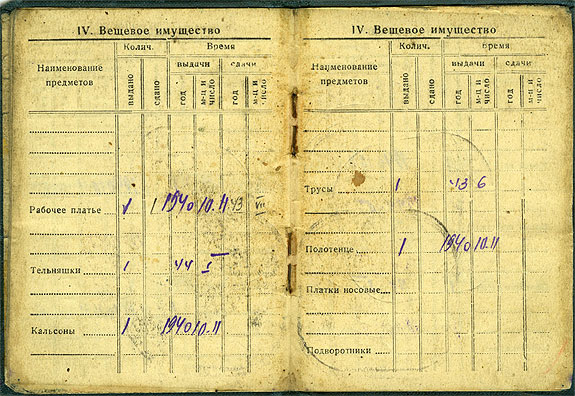 IV. Вещевое имущество
Колич. Время
Наименование предметов выдано сдано выдачи сдачи
год м-ц и число год м-ц и число
Рабочее платье 1 1 1940 10.11 43
Тельняшки 1 44 I
Кальсоны 1 1940 10.11
IV. Вещевое имущество
Колич. Время
Наименование предметов выдано сдано выдачи сдачи
год м-ц и число год м-ц и число
Трусы 1 43 6
Полотенце 1 1940 10.11
Платки носовые
Подворотники